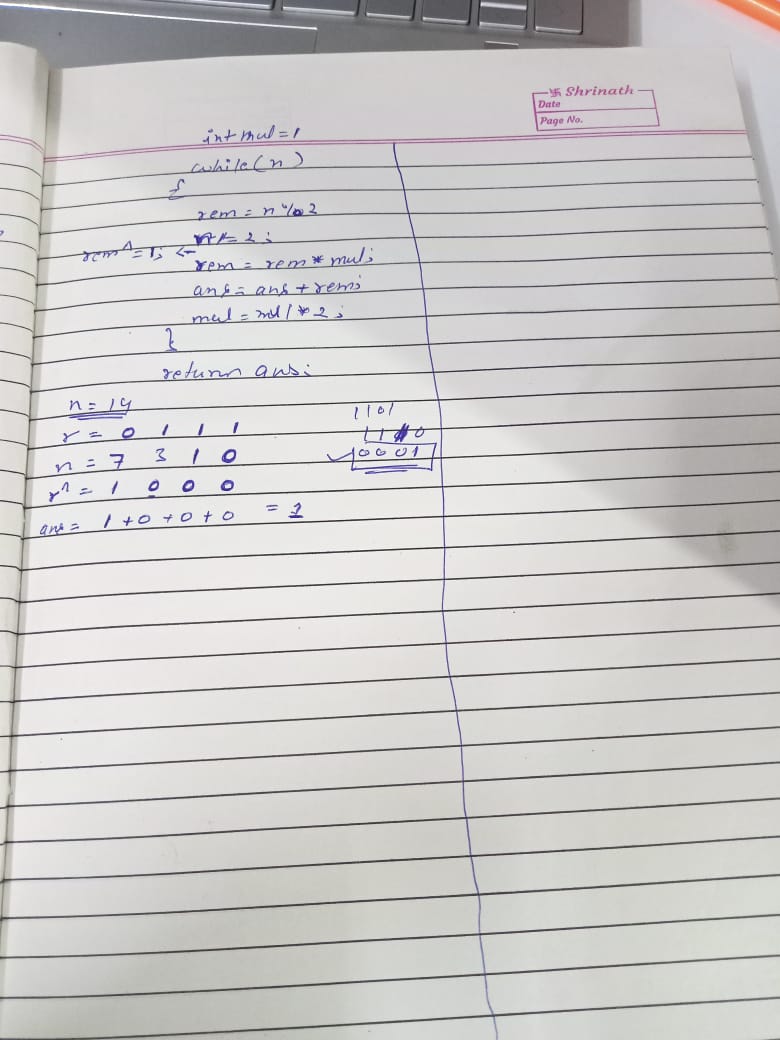 卐 Shrinath
Date
Page No.
int mul = 1
while(n)
{
rem = n % 2
n /= 2;
rem ^= 1; ←
rem = rem * mul;
ans = ans + rem;
mul = mul * 2;
}
return ans;
n = 14
r = 0 1 1 1
n = 7 3 1 0
r^ = 1 0 0 0
ans = 1 + 0 + 0 + 0 = 1
1101
1110
✓ 0001